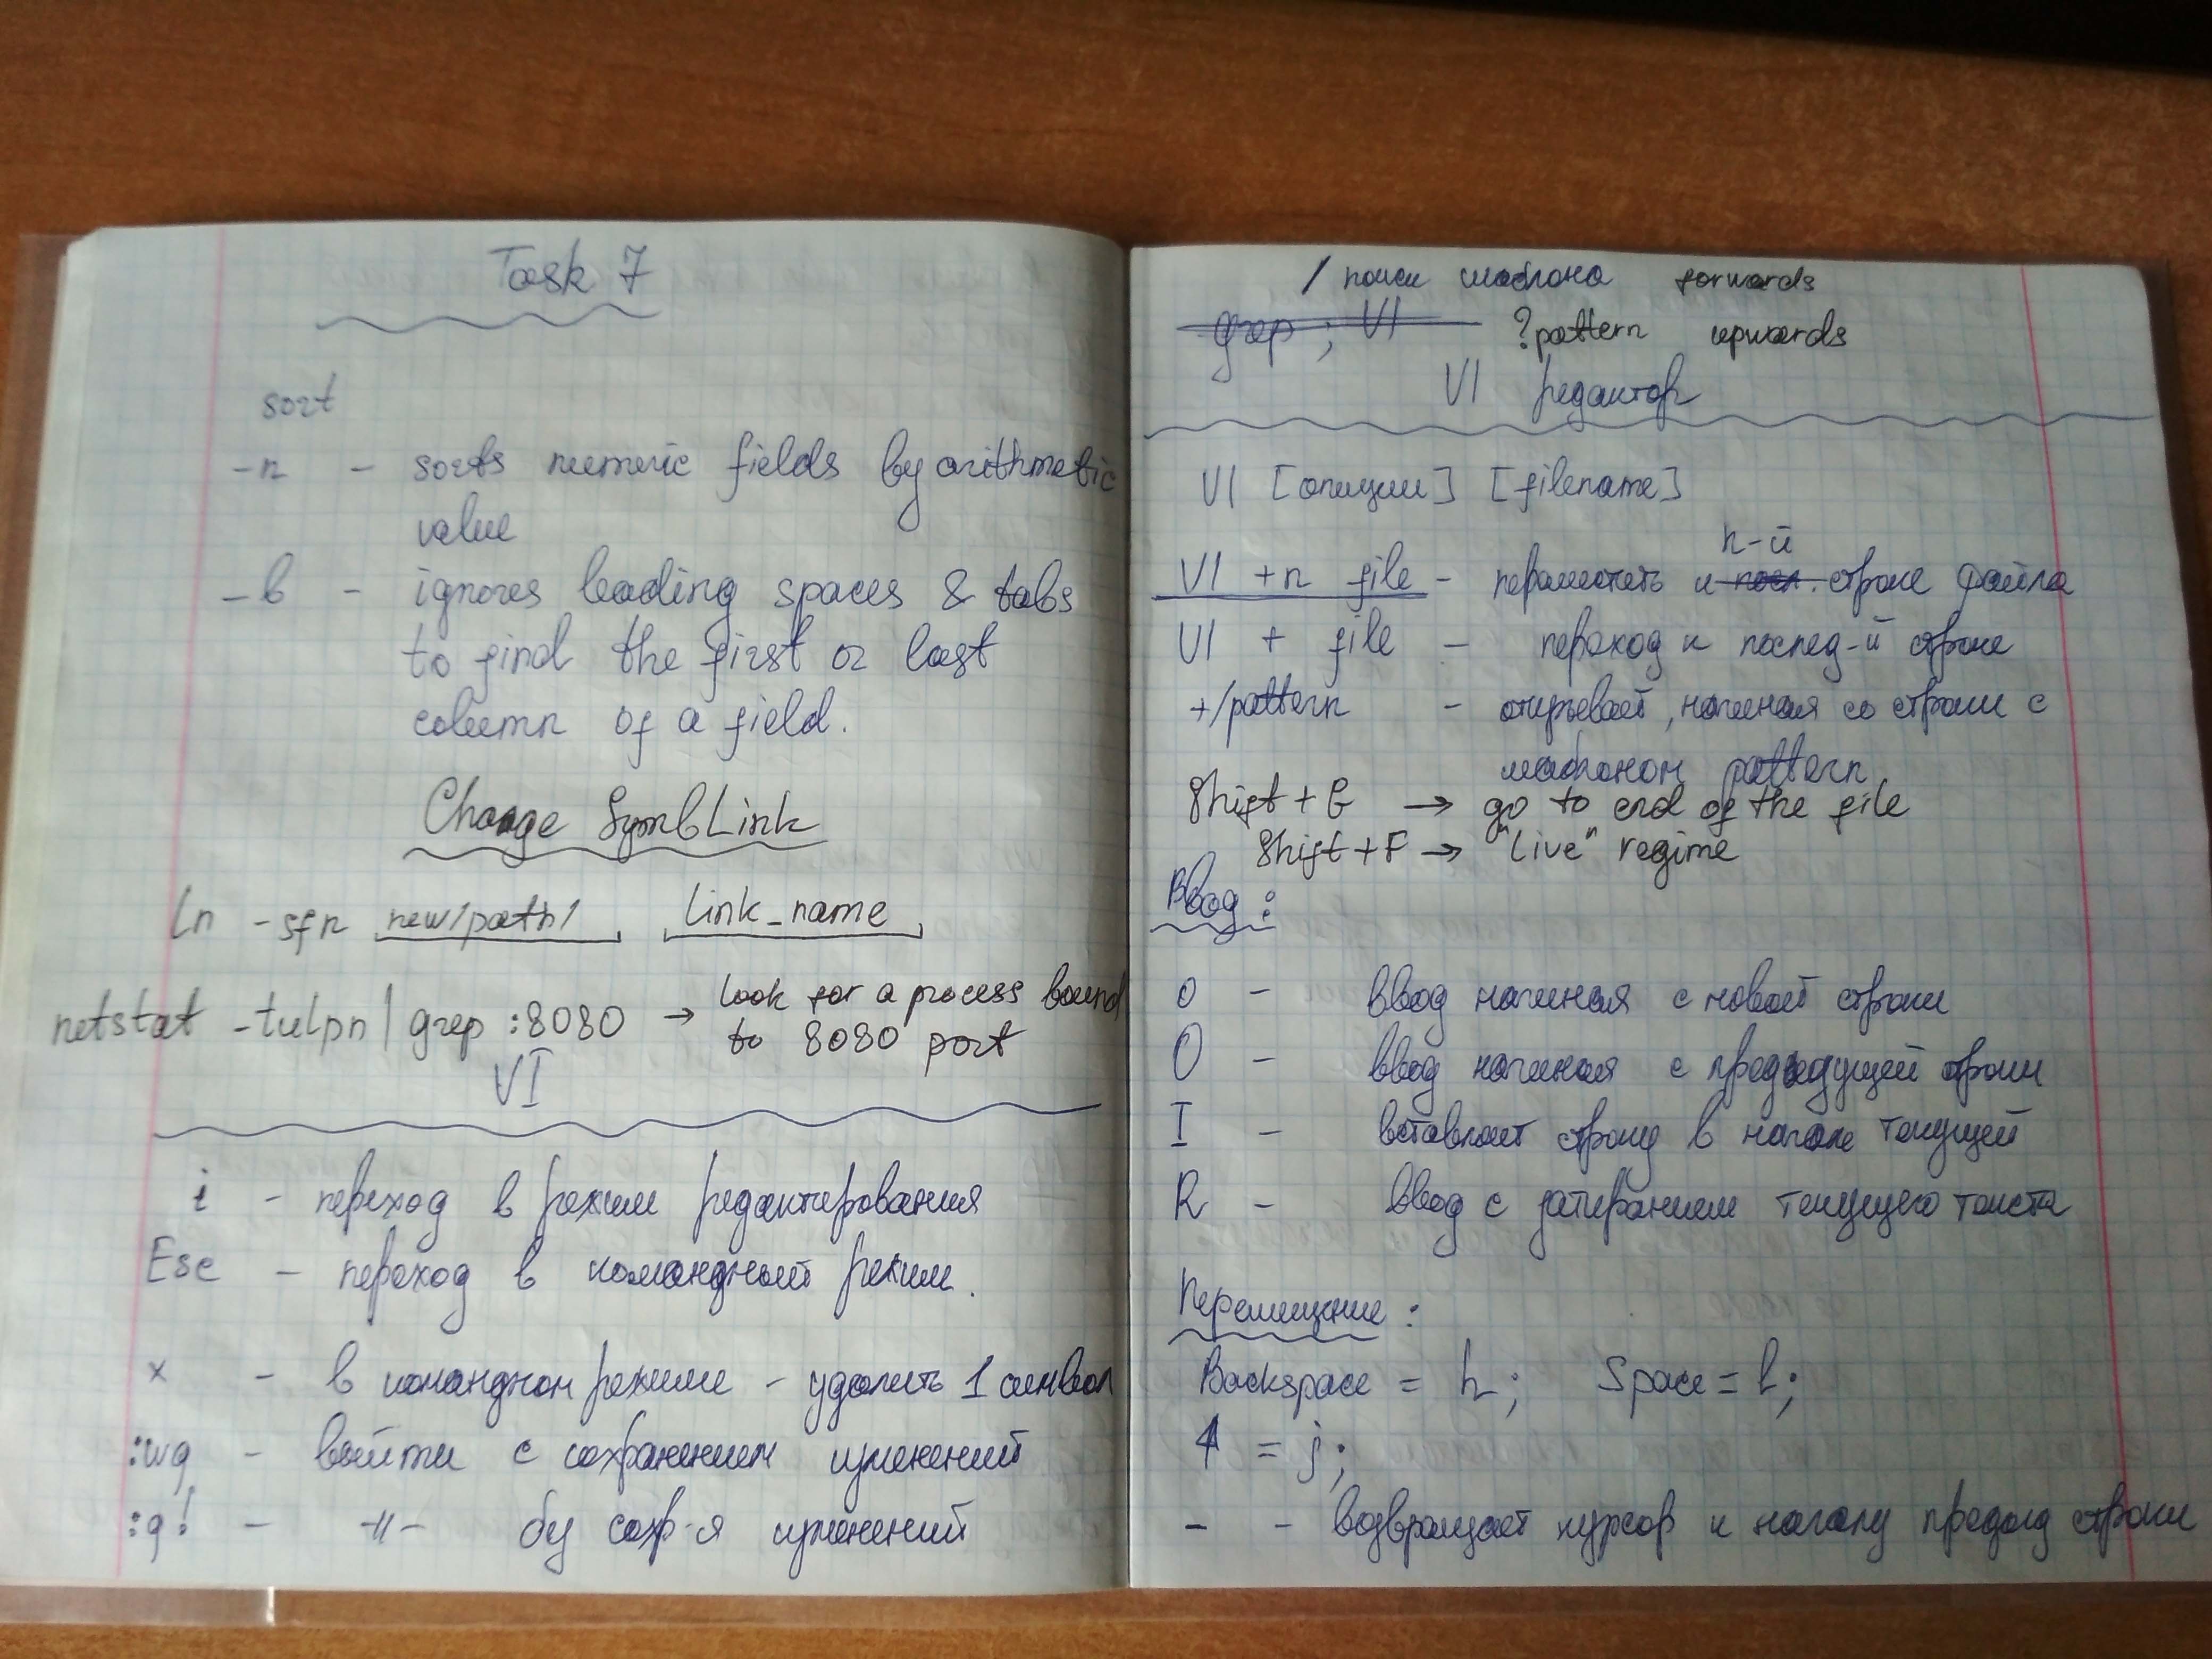 Task 7
sort
-n - sorts numeric fields by arithmetic
value
-b - ignores leading spaces & tabs
to find the first or last
column of a field.
Change SymbLink
ln -sfn new/path/ link_name
netstat -tulpn | grep :8080 → look for a process bound
to 8080 port
VI
i - переход в режим редактирования
Esc - переход в командный режим.
x - в командном режиме - удалить 1 символ
:wq - выйти с сохранением изменений
:q! - -//- без сохр-я изменений
/ поиск шаблона forwards
grep ; VI ?pattern upwards
VI редактор
VI [опции] [filename]
n-й
VI +n file - переместить к посл. строке файла
VI + file - переход к послед-й строке
+/pattern - открывает, начиная со строки с
шаблоном pattern
Shift + G → go to end of the file
Shift + F → "Live" regime
Ввод:
o - ввод начиная с новой строки
O - ввод начиная с предыдущей строки
I - вставляет строку в начале текущей
R - ввод с затиранием текущего текста
Перемещение:
Backspace = h; Space = l;
= j;
- - возвращает курсор к началу предыд строки